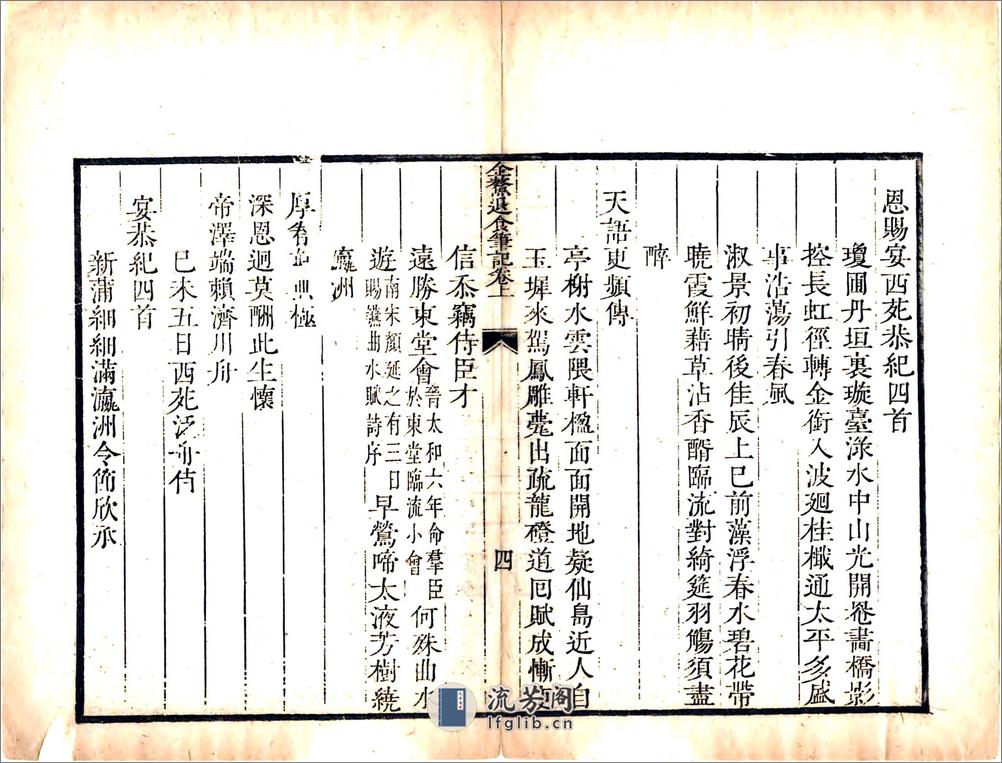 恩賜宴西苑恭紀四首
瓊圃丹垣裏璇臺淥水中山光開卷畵橋影
控長虹徑轉金銜入波廻桂檝通太平多盛
事浩蕩引春風
淑景初晴後佳辰上巳前藻浮春水碧花帶
曉霞鮮藉草沾香醑臨流對綺筵羽觴須盡
醉
天語更頻傳
亭榭水雲隈軒楹面面開地疑仙島近人自
玉墀來駕鳳雕甍出疏龍磴道回賦成慚
金鰲退食筆記卷上
四
信忝竊侍臣才
遠勝東堂會晉太和六年命羣臣於東堂臨流小會何殊曲水
遊南宋顏延之有三日賜讌曲水賦詩序早鶯啼太液芳樹繞
瀛洲
厚眷極
深恩迥莫酬此生懷
帝澤端賴濟川舟
己未五日西苑泛舟侍
宴恭紀四首
新蒲細細滿瀛洲令節欣承
流芳阁
lfglib.cn